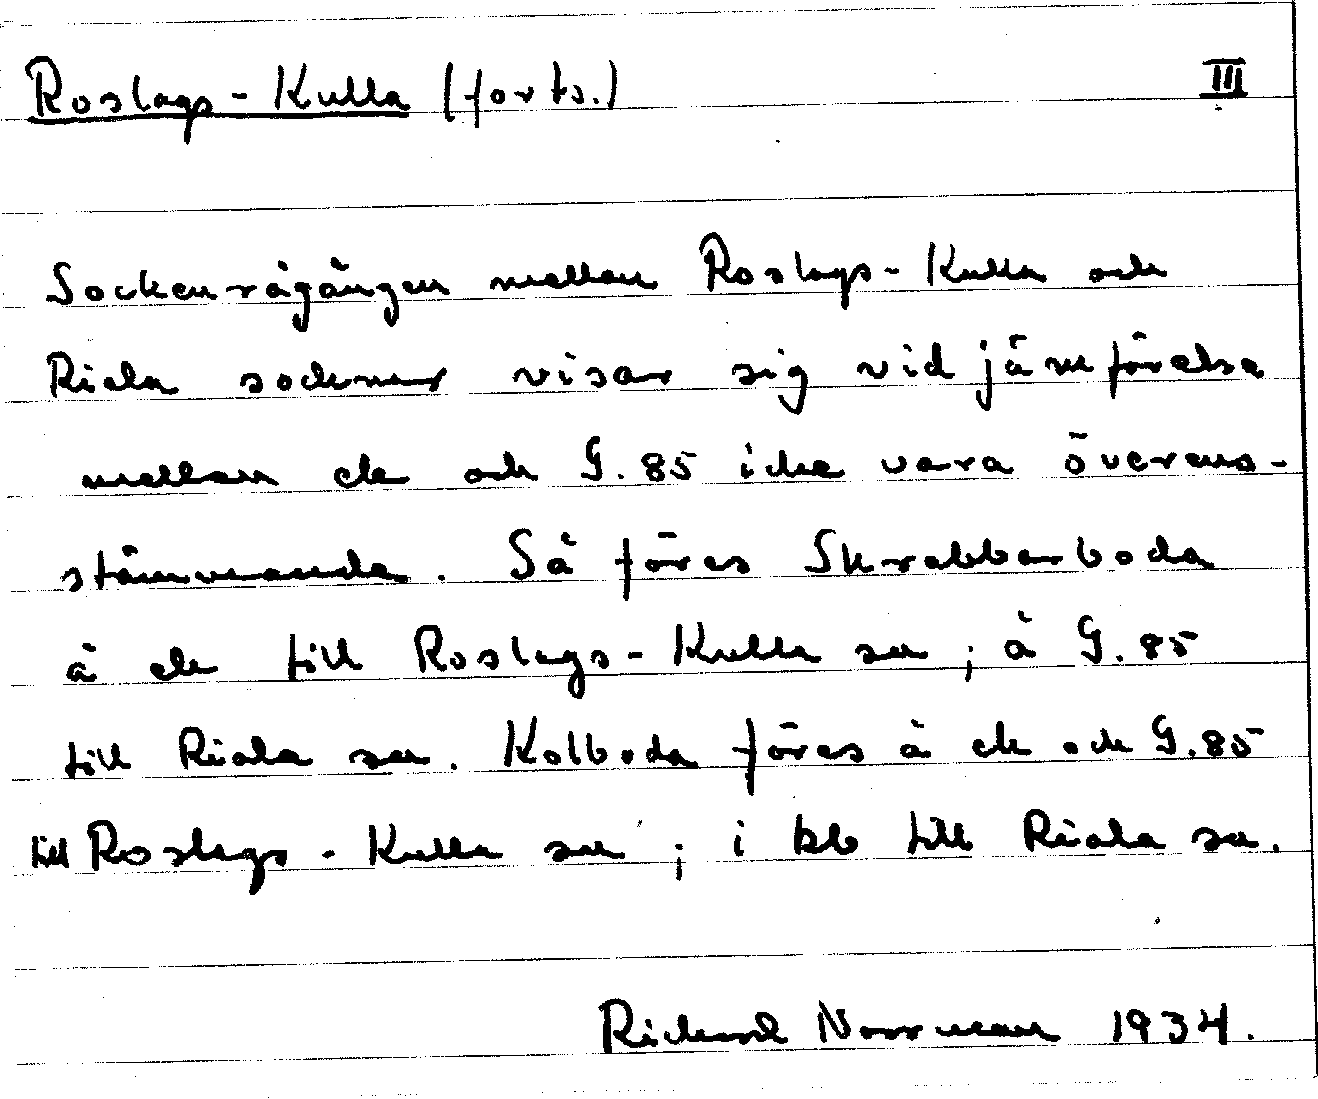 Roslags-Kulla (forts.) III
Sockenrågången mellan Roslags-Kulla och
Riala socknar visar sig vid jämförelse
mellan ek och G.85 icke vara överens-
stämmande. Så föres Skrabbarboda
å ek till Roslags-Kulla sn; å G.85
till Riala sn. Kolboda föres å ek och G.85
till Roslags-Kulla sn; i kb till Riala sn.
Richard Norrman 1934.